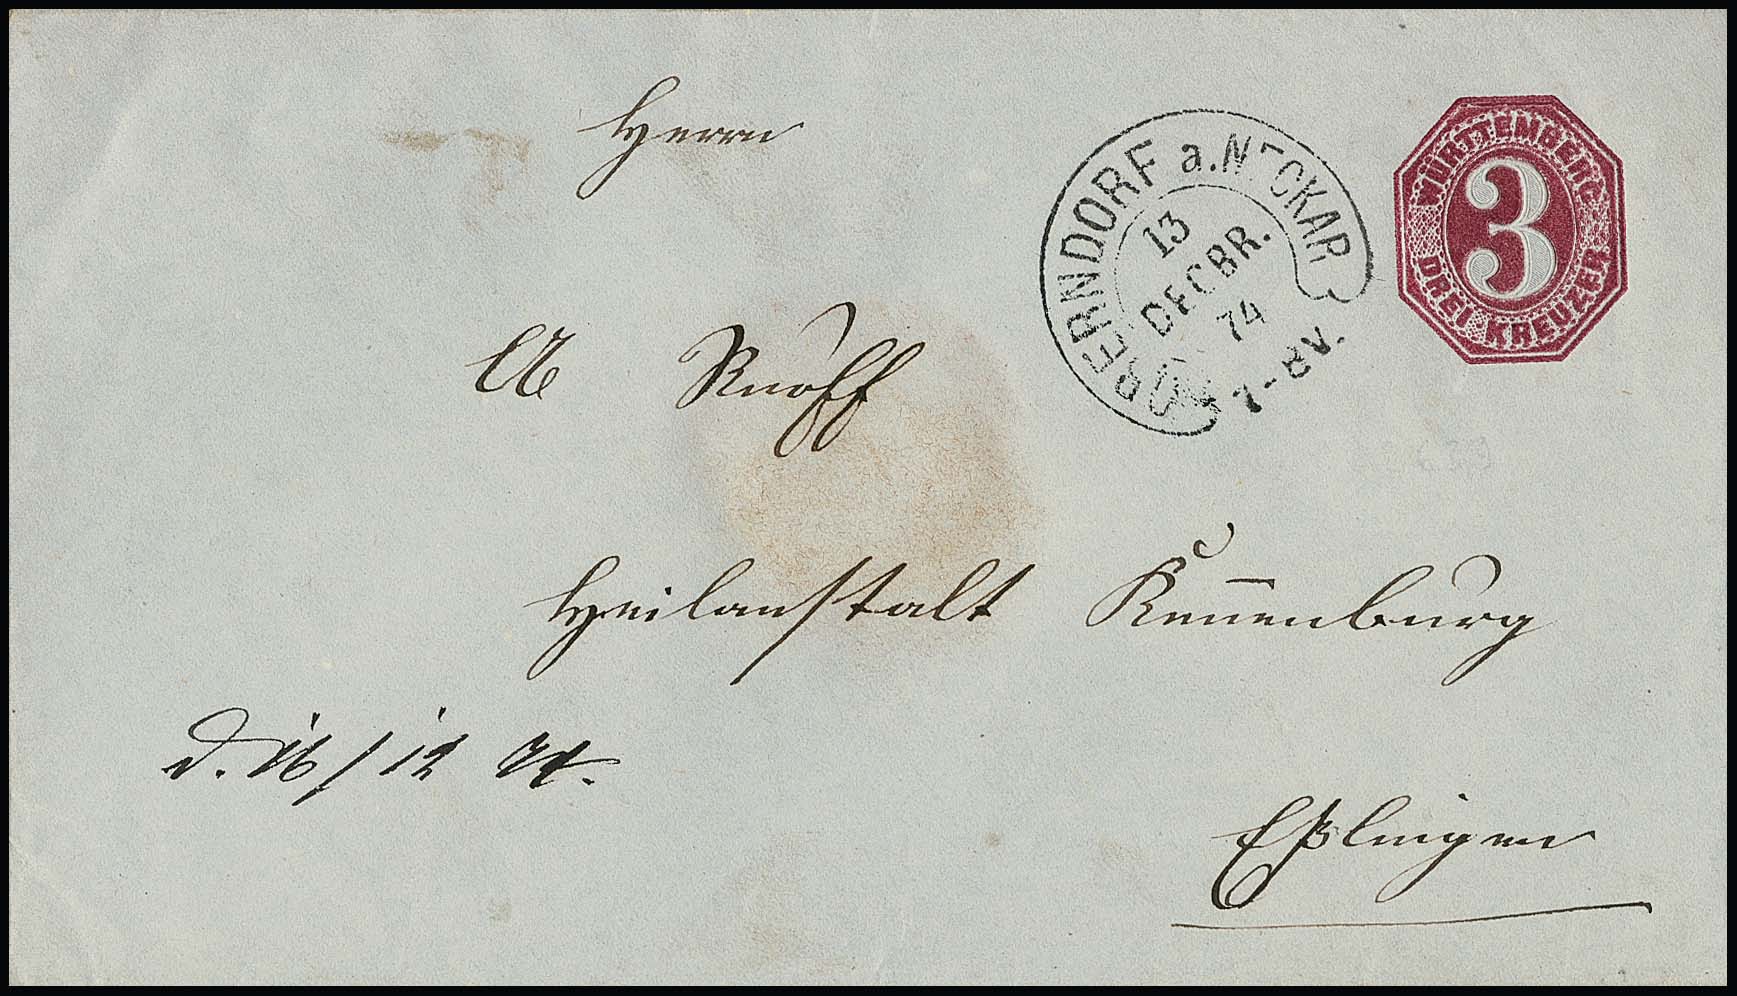 Herrn
OBERNDORF a. NECKAR
13
DECBR.
74
7-8 V.
WÜRTTEMBERG
3
DREI KREUZER.
A Knöff
Heilanstalt Kennenburg
d. 16/12 74.
Eßlingen